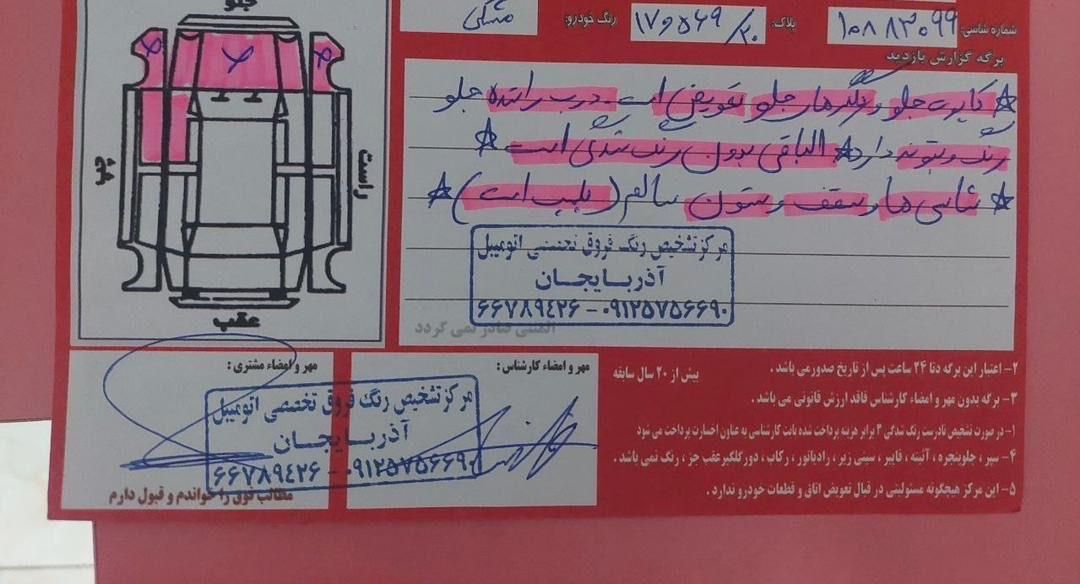 جلو
چپ
راست
عقب
شماره شاسی: ۱۰۸۸۳۰۹۹ پلاک: ۱۷و۵۶۹/۲۰ رنگ خودرو: مشکی
برگه گزارش بازدید
* کاپوت جلو و گلگیرهای جلو تعویض است - درب راننده جلو
رنگ و بتونه دارد * الباقی بدون رنگ شدگی است *
* شاسی ها و سقف و ستون سالم (پلمپ است) *
مرکز تشخیص رنگ فروق تخصصی اتومبیل
آذربایجان
۶۶۷۸۹۴۲۶ - ۰۹۱۲۵۷۵۶۶۹۰
المثنی صادر نمی گردد
مهر و امضاء کارشناس :
مهر و امضاء مشتری :
مرکز تشخیص رنگ فروق تخصصی اتومبیل
آذربایجان
۶۶۷۸۹۴۲۶ - ۰۹۱۲۵۷۵۶۶۹۰
مطالب فوق را خواندم و قبول دارم
۲- اعتبار این برگه دتا ۲۴ ساعت پس از تاریخ صدور می باشد . بیش از ۲۰ سال سابقه
۳- برگه بدون مهر و امضاء کارشناس فاقد ارزش قانونی می باشد .
۱- در صورت تشخیص نادرست رنگ شدگی ۳ برابر هزینه پرداخت شده بابت کارشناسی به عناون اخسارت پرداخت می شود
۴- سپر ، جلوپنجره ، آئینه ، فایبر ، سینی زیر ، رادیاتور ، رکاب ، دور گلگیر عقب جز ، رنگ نمی باشد .
۵- این مرکز هیچگونه مسئولیتی در قبال تعویض اتاق و قطعات خودرو ندارد .